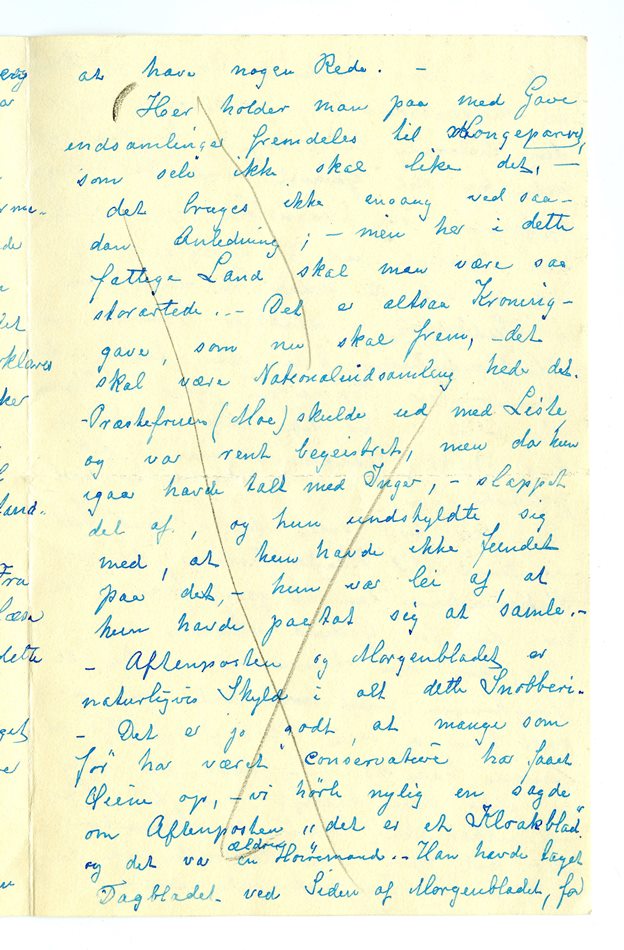 at have nogen Rede. –
Her holder man paa med Gave-
indsamlinger fremdeles til Kongeparret,
som selv ikke skal like det, –
det bruges ikke engang ved saa-
dan Anledning; – men her i dette
fattige Land skal man være saa
storartede. – Det er altsaa Kronings-
gave, som nu skal frem, – det
skal være Nationalindsamling hede det.
– Præstefruen (Moe) skulde ud med Liste,
og var rent begeistret, men da hun
igaar havde talt med Inger, – slappet
det af, og hun undskyldte sig
med, at hun havde ikke fundet
paa det, – hun var lei af, at
hun havde paatat sig at samle. –
– Aftenposten og Morgenbladet er
naturligvis Skyld i alt dette Snobberi. –
– Det er jo godt, at mange som
før har været conservative har faaet
Øiene op, – vi hørte nylig en sagde
om Aftenposten „det er et Kloakblad“
og det var en ældre Høiremand. – Han havde taget
Dagbladet ved Siden af Morgenbladet, for